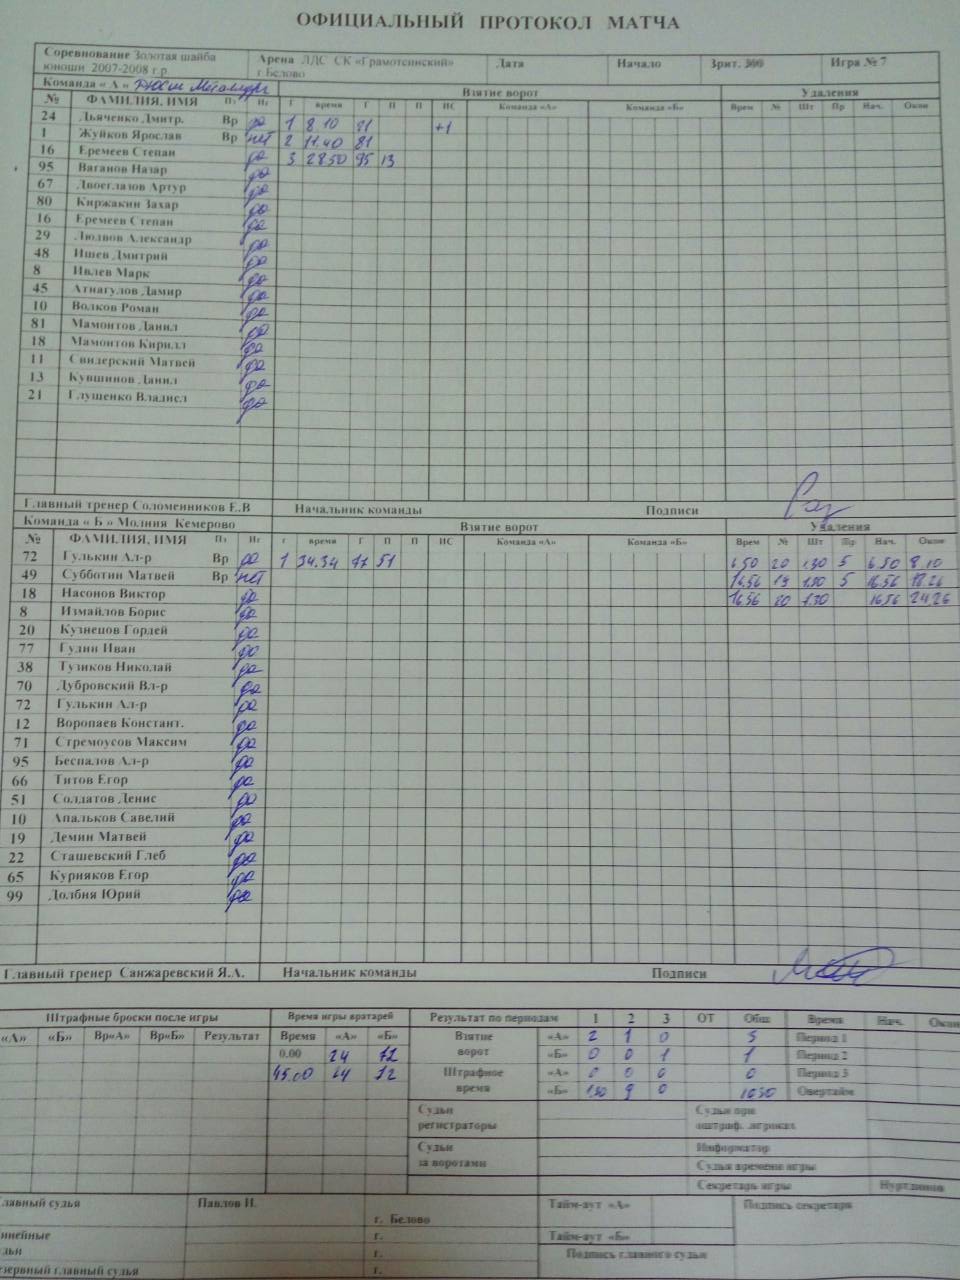 ОФИЦИАЛЬНЫЙ ПРОТОКОЛ МАТЧА
Соревнование Золотая шайба юноши 2007-2008 г.р Арена ЛДС СК «Грамотеинский» г.Белово Дата Начало Зрит. 300 Игра № 7
Команда « А » Металлург Взятие ворот Удаления
№ ФАМИЛИЯ, ИМЯ Пз Иг Г время Г П П ИС Команда «А» Команда «Б» Врем № Шт Пр Нач. Окон
24 Дьяченко Дмитр. Вр да 1 8 10 21 +1
1 Жуйков Ярослав Вр нет 2 11.40 81
16 Еремеев Степан да 3 28.50 95 13
95 Ваганов Назар да
67 Двоеглазов Артур да
80 Киржакин Захар да
16 Еремеев Степан да
29 Людвов Александр да
48 Ишев Дмитрий да
8 Ивлев Марк да
45 Атнагулов Дамир да
10 Волков Роман да
81 Мамонтов Данил да
18 Мамонтов Кирилл да
11 Свидерский Матвей да
13 Кувшинов Данил да
21 Глушенко Владисл да
Главный тренер Соломенников Е.В Начальник команды Подписи
Команда « Б » Молния Кемерово Взятие ворот Удаления
№ ФАМИЛИЯ, ИМЯ Пз Иг Г время Г П П ИС Команда «А» Команда «Б» Врем № Шт Пр Нач. Окон
72 Гулькин Ал-р Вр да 1 34.34 77 51 6.50 20 1.30 5 6.50 8.10
49 Субботин Матвей Вр нет 16.56 19 1.30 5 16.56 18.26
18 Насонов Виктор да 16.56 20 1.30 16.56 24.26
8 Измайлов Борис да
20 Кузнецов Гордей да
77 Гудин Иван да
38 Тузиков Николай да
70 Дубровский Вл-р да
72 Гулькин Ал-р да
12 Воропаев Констант. да
71 Стремоусов Максим да
95 Беспалов Ал-р да
66 Титов Егор да
51 Солдатов Денис да
10 Апальков Савелий да
19 Демин Матвей да
22 Сташевский Глеб да
65 Курияков Егор да
99 Долбня Юрий да
Главный тренер Санжаревский Я.А. Начальник команды Подписи
Штрафные броски после игры Время игры вратарей Результат по периодам 1 2 3 ОТ Общ Время Нач. Окон
«А» «Б» Вр«А» Вр«Б» Результат Время «А» «Б» Взятие ворот «А» 2 1 0 3 Период 1
0.00 24 72 «Б» 0 0 1 1 Период 2
45.00 24 72 Штрафное время «А» 0 0 0 0 Период 3
«Б» 1.30 9 0 10.30 Овертайм
Судьи регистраторы Судьи при оштраф. игроках
Судьи за воротами Информатор
Судья времени игры
Секретарь игры Нуртдинов
Главный судья Павлов И. г. Белово Тайм-аут «А» Подпись секретаря
Линейные судьи г. Тайм-аут «Б»
г. Подпись главного судьи
Резервный главный судья г.